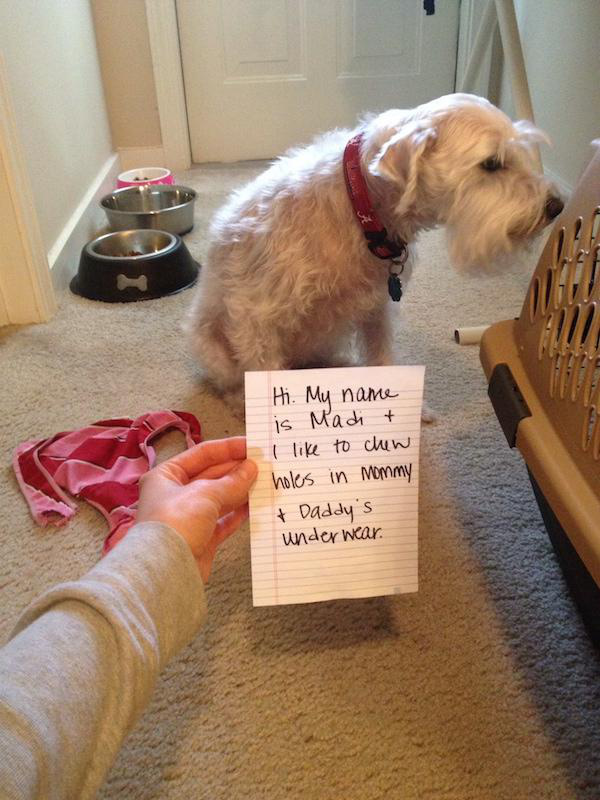 Hi. My name
is Madi +
I like to chew
holes in Mommy
+ Daddy's
underwear.